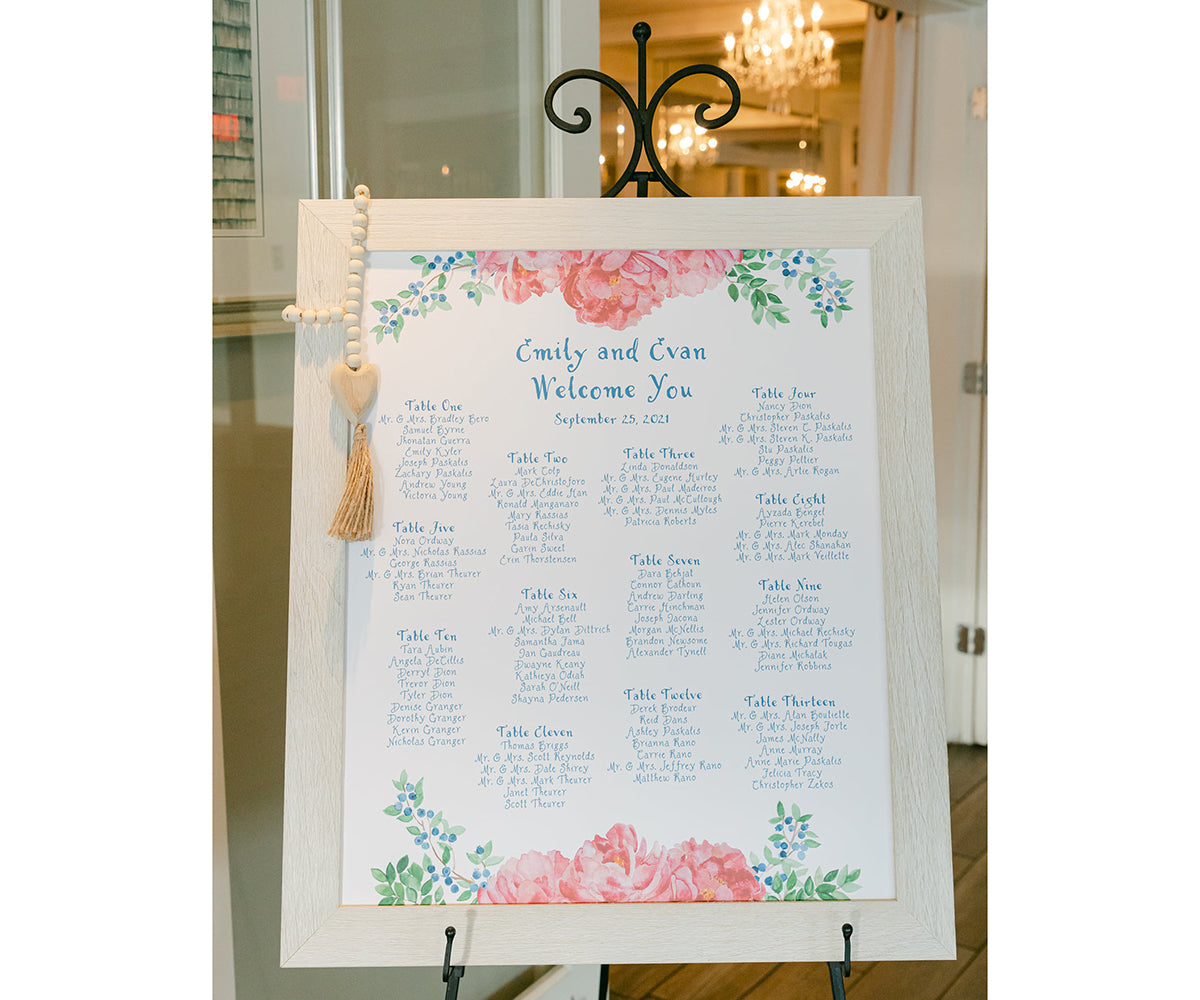 Emily and Evan
Welcome You
September 25, 2021
Table One
Mr. & Mrs. Bradley Bero
Samuel Byrne
Jhonatan Guerra
Emily Kyler
Joseph Paskalis
Zachary Paskalis
Andrew Young
Victoria Young
Table Two
Mark Colp
Laura DeChristoforo
Mr. & Mrs. Eddie Han
Ronald Manganaro
Mary Rassias
Tasia Rechisky
Paula Silva
Garin Sweet
Erin Thorstensen
Table Three
Linda Donaldson
Mr. & Mrs. Eugene Hurley
Mr. & Mrs. Paul Madeiros
Mr. & Mrs. Paul McCullough
Mr. & Mrs. Dennis Myles
Patricia Roberts
Table Four
Nancy Dion
Christopher Paskalis
Mr. & Mrs. Steven T. Paskalis
Mr. & Mrs. Steven K. Paskalis
Stu Paskalis
Peggy Peltier
Mr. & Mrs. Artie Rogan
Table Five
Nora Ordway
Mr. & Mrs. Nicholas Rassias
George Rassias
Mr. & Mrs. Brian Theurer
Ryan Theurer
Sean Theurer
Table Six
Amy Arsenault
Michael Bell
Mr. & Mrs. Dylan Dittrich
Samantha Fama
Ian Gaudreau
Dwayne Keany
Kathieya Odiah
Sarah O'Neill
Shayna Pedersen
Table Seven
Dara Behjat
Connor Calhoun
Andrew Darling
Carrie Hinchman
Joseph Iacona
Morgan McNellis
Brandon Newsome
Alexander Tynell
Table Eight
Ayzada Bengel
Pierre Kerebel
Mr. & Mrs. Mark Monday
Mr. & Mrs. Alec Shanahan
Mr. & Mrs. Mark Veillette
Table Nine
Helen Olson
Jennifer Ordway
Lester Ordway
Mr. & Mrs. Michael Rechisky
Mr. & Mrs. Richard Tougas
Diane Michalak
Jennifer Robbins
Table Ten
Tara Aubin
Angela DeCillis
Derryl Dion
Trevor Dion
Tyler Dion
Denise Granger
Dorothy Granger
Kevin Granger
Nicholas Granger
Table Eleven
Thomas Briggs
Mr. & Mrs. Scott Reynolds
Mr. & Mrs. Dale Shirey
Mr. & Mrs. Mark Theurer
Janet Theurer
Scott Theurer
Table Twelve
Derek Brodeur
Reid Dans
Ashley Paskalis
Brianna Rano
Carrie Rano
Mr. & Mrs. Jeffrey Rano
Matthew Rano
Table Thirteen
Mr. & Mrs. Alan Boutiette
Mr. & Mrs. Joseph Forte
James McNally
Anne Murray
Anne Marie Paskalis
Felicia Tracy
Christopher Zekos